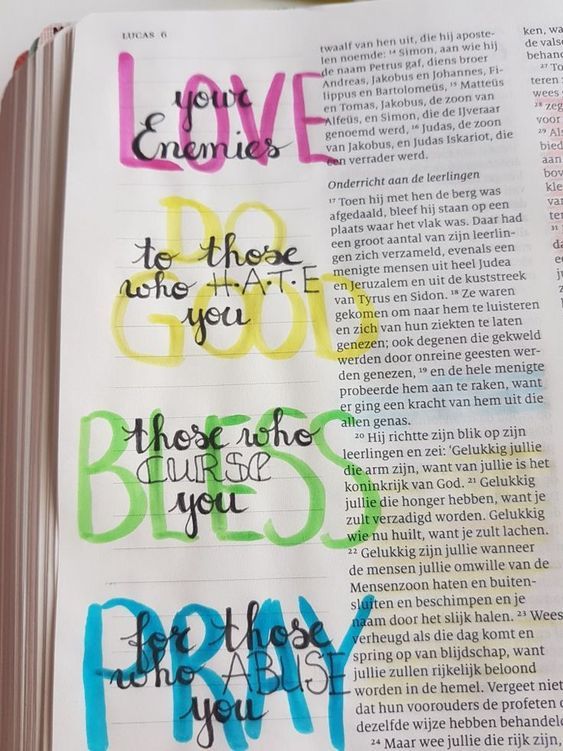 LUCAS 6
LOVE
your
Enemies
DO
to those
who H·A·T·E
GOOD
you
BLESS
those who
CURSE
you
PRAY
for those
who ABUSE
you
twaalf van hen uit, die hij aposte-
len noemde: 14 Simon, aan wie hij
de naam Petrus gaf, diens broer
Andreas, Jakobus en Johannes, Fi-
lippus en Bartolomeüs, 15 Matteüs
en Tomas, Jakobus, de zoon van
Alfeüs, en Simon, die de IJveraar
genoemd werd, 16 Judas, de zoon
van Jakobus, en Judas Iskariot, die
een verrader werd.
Onderricht aan de leerlingen
17 Toen hij met hen de berg was
afgedaald, bleef hij staan op een
plaats waar het vlak was. Daar had
een groot aantal van zijn leerlin-
gen zich verzameld, evenals een
menigte mensen uit heel Judea
en Jeruzalem en uit de kuststreek
van Tyrus en Sidon. 18 Ze waren
gekomen om naar hem te luisteren
en zich van hun ziekten te laten
genezen; ook degenen die gekweld
werden door onreine geesten wer-
den genezen, 19 en de hele menigte
probeerde hem aan te raken, want
er ging een kracht van hem uit die
allen genas.
20 Hij richtte zijn blik op zijn
leerlingen en zei: 'Gelukkig jullie
die arm zijn, want van jullie is het
koninkrijk van God. 21 Gelukkig
jullie die honger hebben, want je
zult verzadigd worden. Gelukkig
wie nu huilt, want je zult lachen.
22 Gelukkig zijn jullie wanneer
de mensen jullie omwille van de
Mensenzoon haten en buiten-
sluiten en beschimpen en je
naam door het slijk halen. 23 Wees
verheugd als die dag komt en
spring op van blijdschap, want
jullie zullen rijkelijk beloond
worden in de hemel. Vergeet niet
dat hun voorouders de profeten o
dezelfde wijze hebben behandel
24 Maar wee jullie die rijk zijn,
ken, wa
de valse
behan
27 To
teren
wees
28 zeg
voor
29 Als
bied
aan
bov
kle
van
ter
31